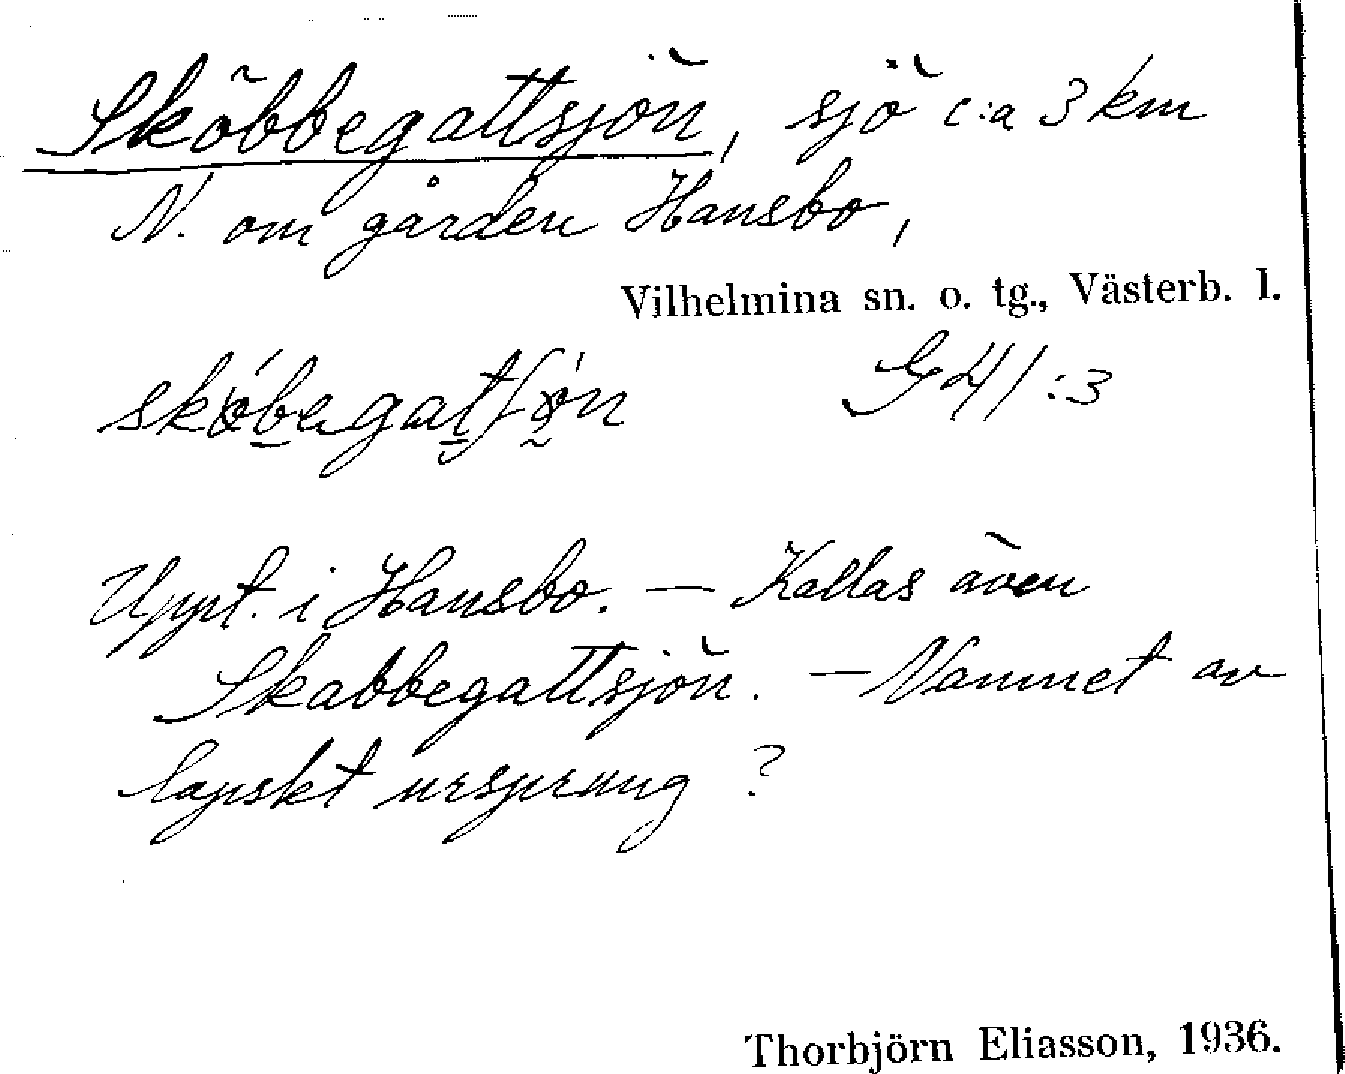 Sköbbegattsjön, sjö c:a 3 km
N. om gården Hansbo,
Vilhelmina sn. o. tg., Västerb. l.
G 41:3
Uppt. i Hansbo. — Kallas även
Skabbegattsjön. — Namnet av
lapskt ursprung?
Thorbjörn Eliasson, 1936.